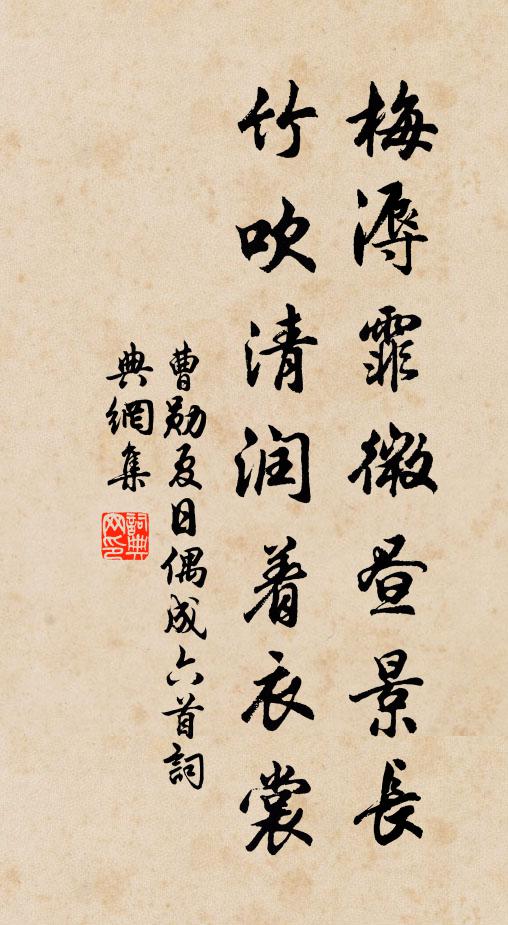 梅溽霏微昼景長
竹吹清润着衣裳
曹勛夏日偶成六首詞
典網集
詞典
网印